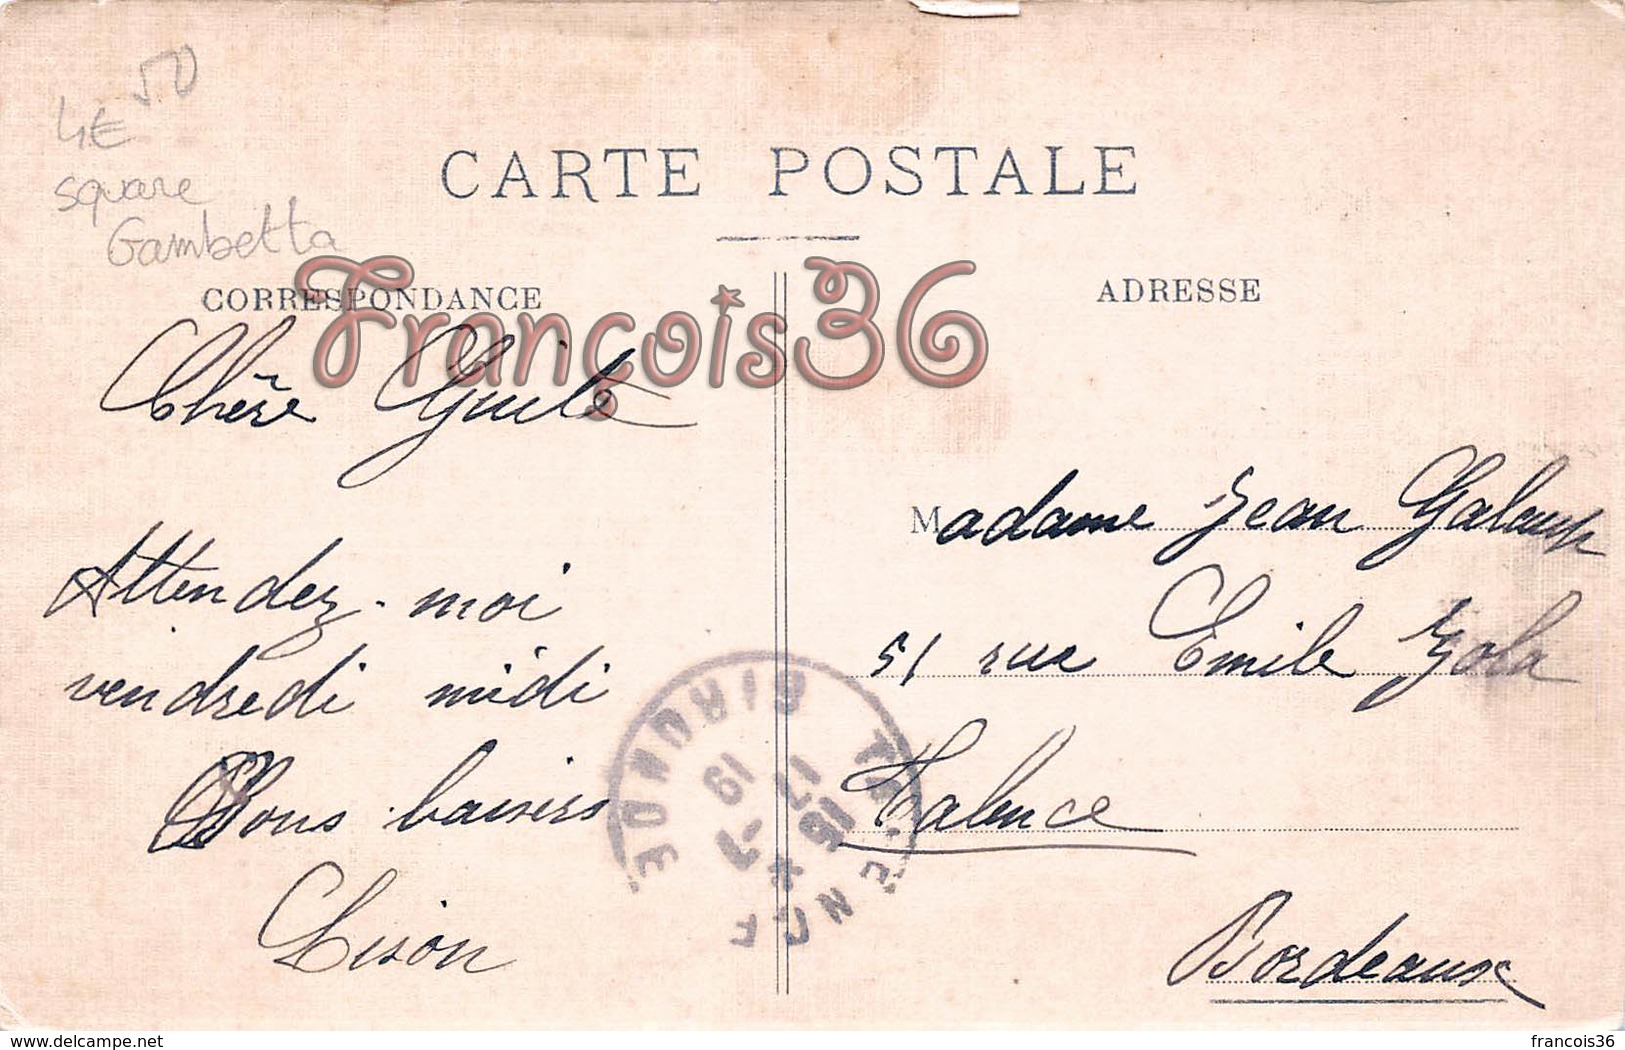 4€ 50
square
Gambetta
CARTE POSTALE
CORRESPONDANCE
ADRESSE
François36
Chère
Attendez-moi
vendredi midi
Bons baisers
Lison
Madame Jean Galaup
51 rue Emile Zola
Talence
Bordeaux
TALENCE
GIRONDE
19
delcampe.net
francois36